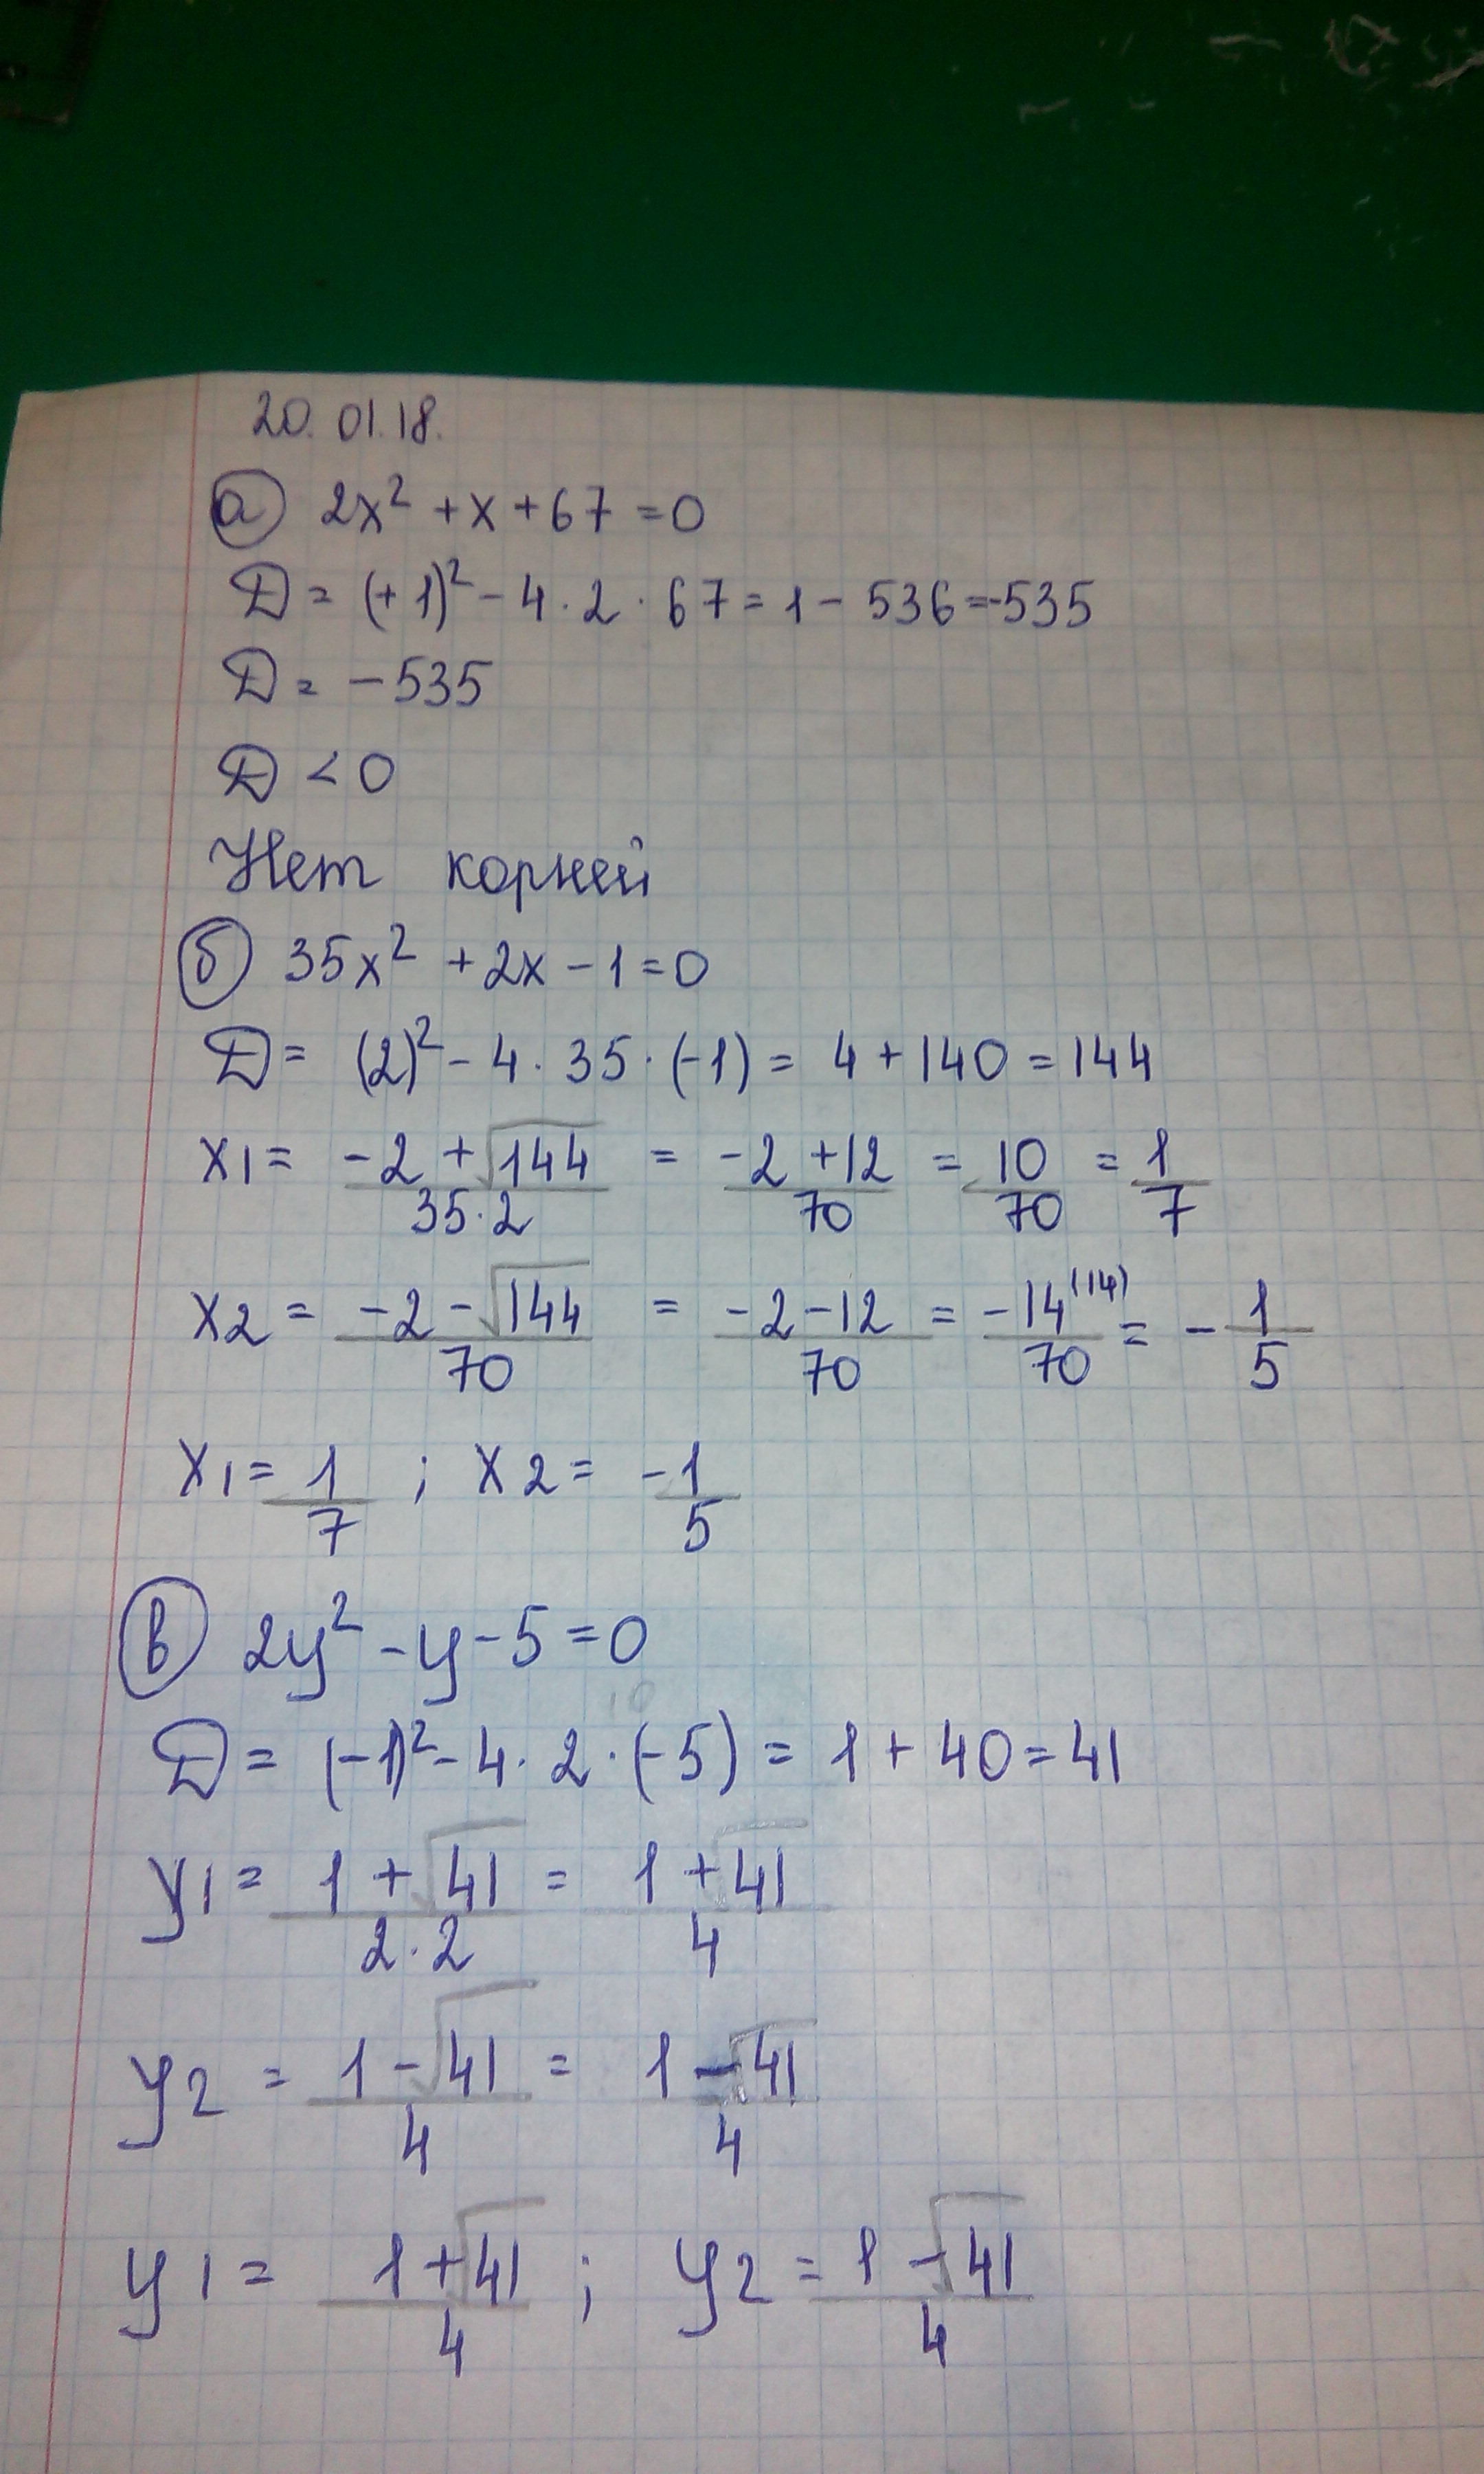 20.01.18.
а) 2x² + x + 67 = 0
D = (+1)² - 4 · 2 · 67 = 1 - 536 = -535
D = -535
D < 0
Нет корней
б) 35x² + 2x - 1 = 0
D = (2)² - 4 · 35 · (-1) = 4 + 140 = 144
x1 = (-2 + √144)/(35·2) = (-2 + 12)/70 = 10/70 = 1/7
x2 = (-2 - √144)/70 = (-2 - 12)/70 = -14⁽¹⁴⁾/70 = -1/5
x1 = 1/7 ; x2 = -1/5
в) 2y² - y - 5 = 0
D = (-1)² - 4 · 2 · (-5) = 1 + 40 = 41
y1 = (1 + √41)/(2·2) = (1 + √41)/4
y2 = (1 - √41)/4 = (1 - √41)/4
y1 = (1 + √41)/4 ; y2 = (1 - √41)/4